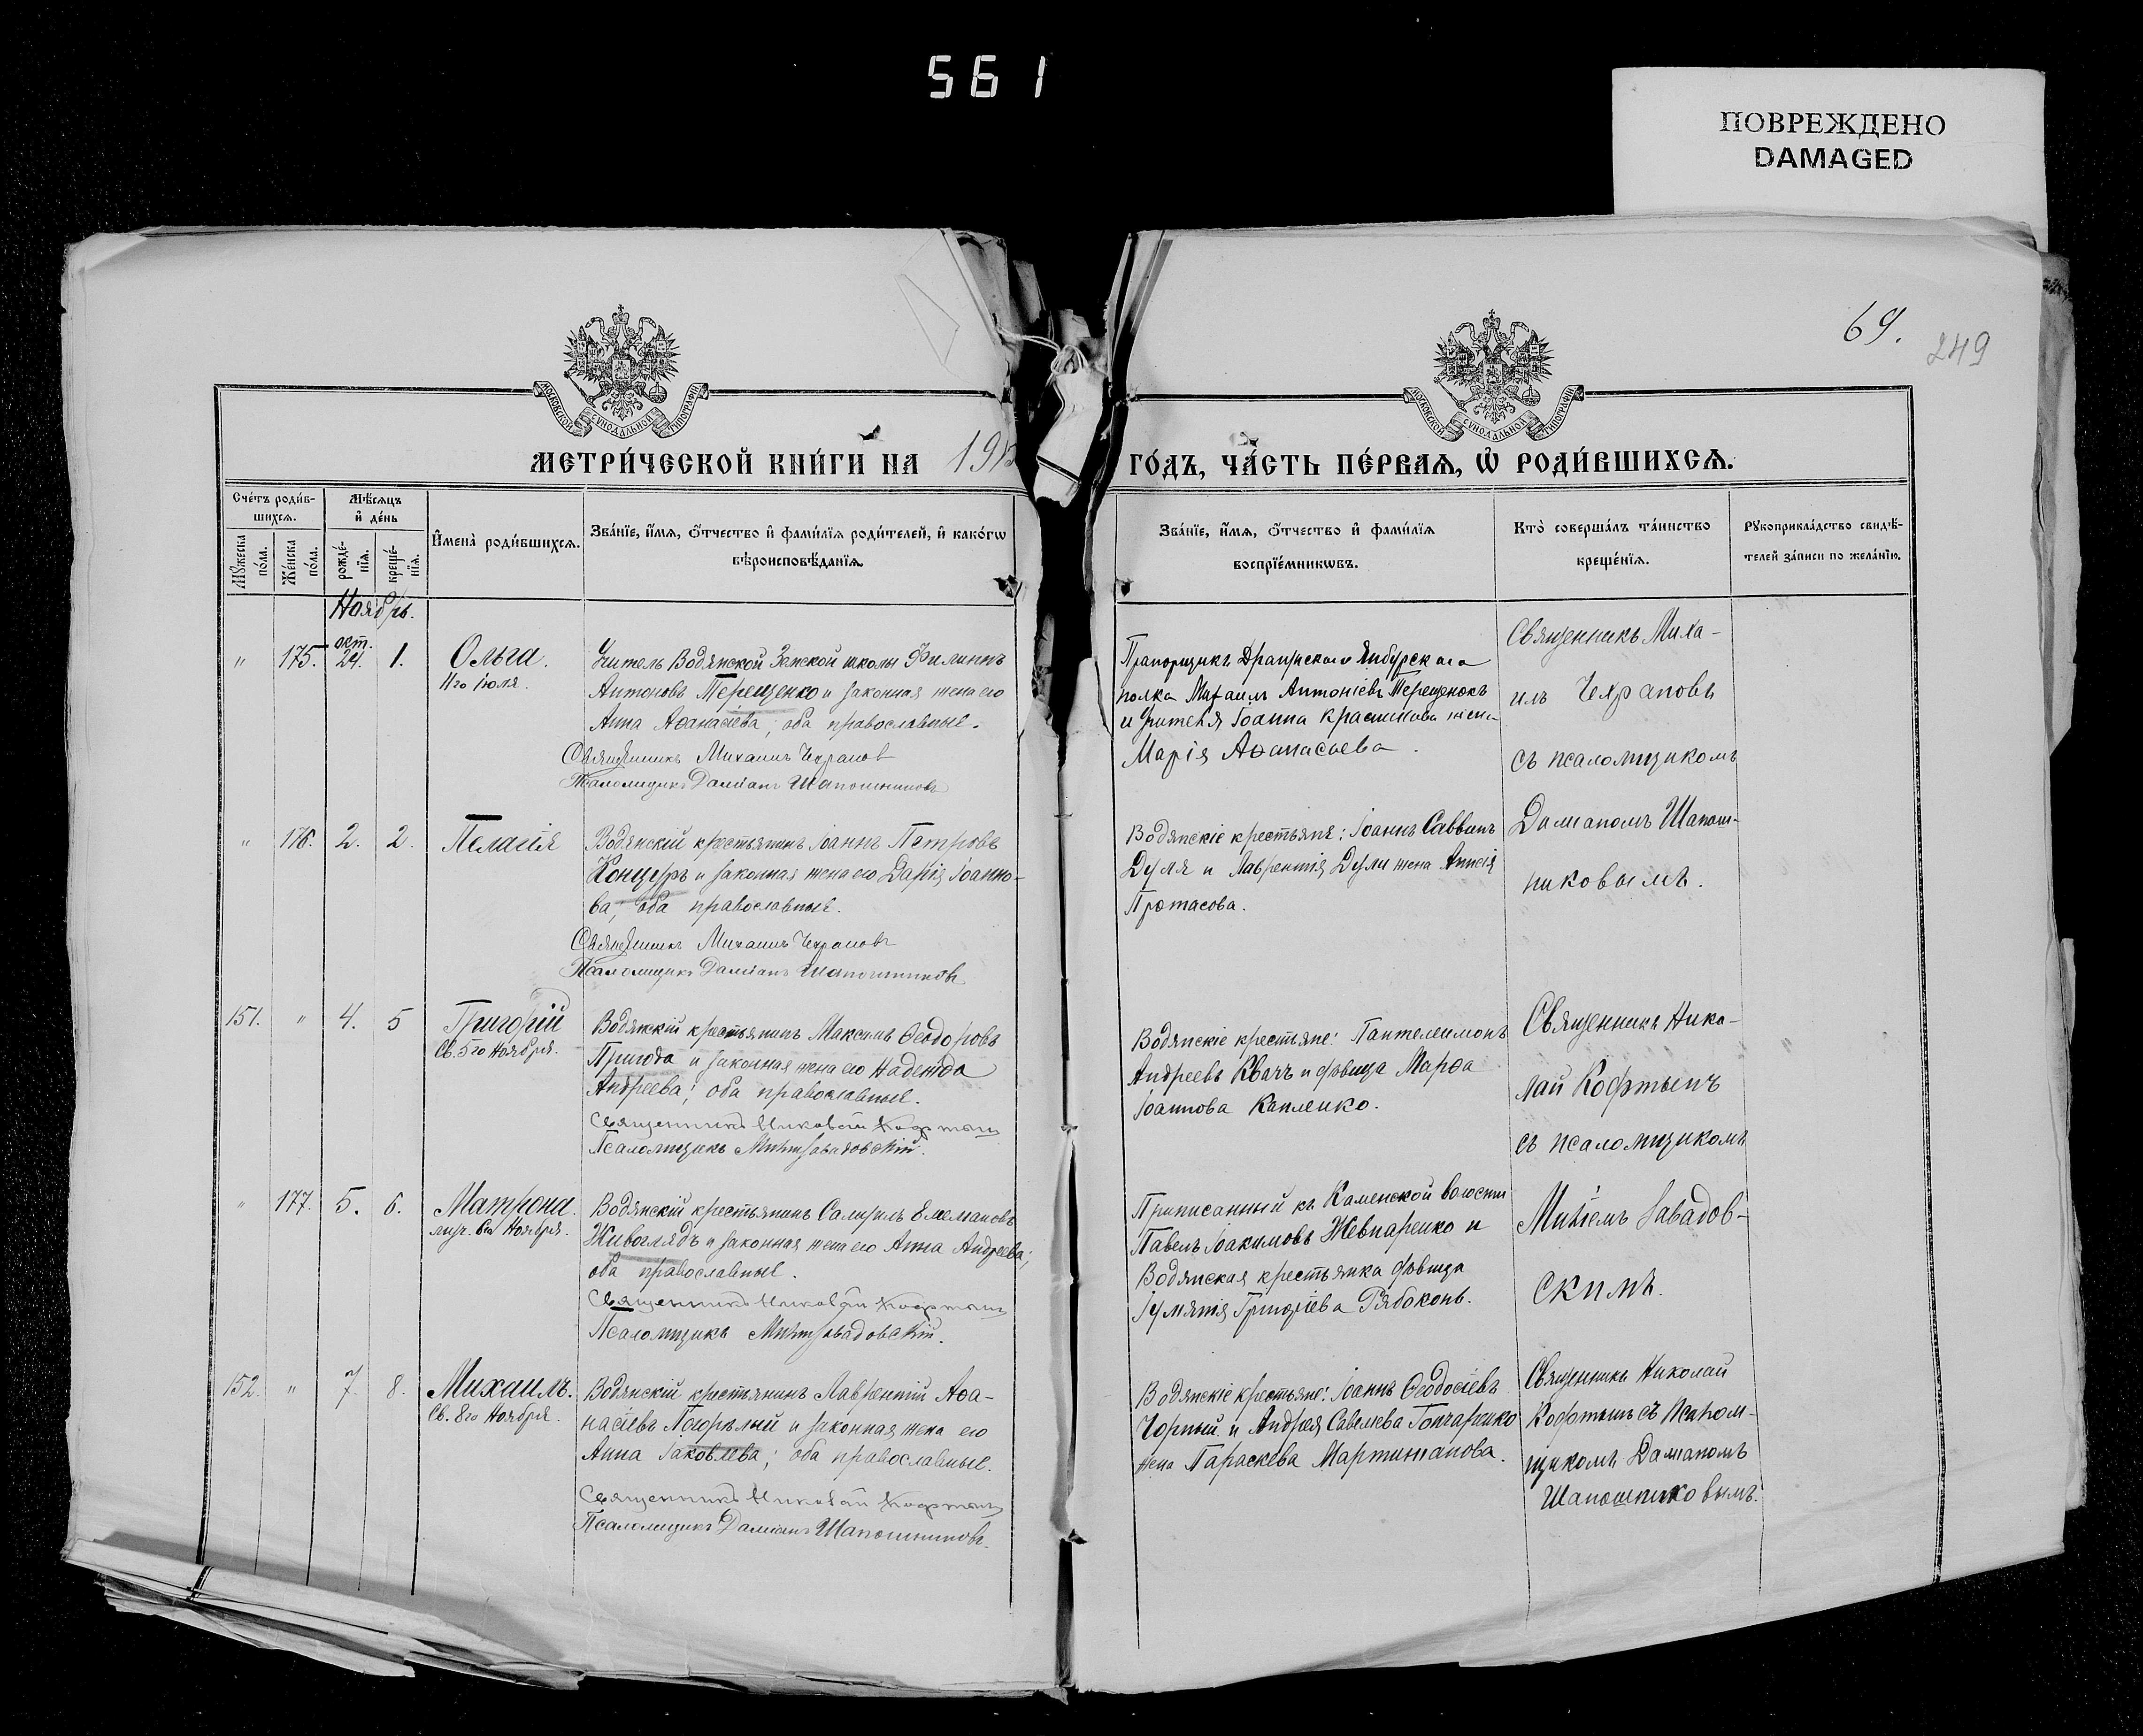 561
ПОВРЕЖДЕНО
DAMAGED
69.
249
МОСКОВСКОЙ СѴНОДАЛЬНОЙ ТИПОГРАФІИ
МОСКОВСКОЙ СѴНОДАЛЬНОЙ ТИПОГРАФІИ
МЕТРИ́ЧЕСКОЙ КНИ́ГИ НА 191
ГО́ДЪ, ЧА́СТЬ ПЕ́РВАѦ, Ѡ҆ РОДИ́ВШИХСѦ.
Сче́тъ роди́в-
шихсѧ.
Мꙋ́жеска по́ла.
Же́нска по́ла.
Мѣ́сѧцъ
и҆ де́нь
рожде́-
нїѧ.
креще́-
нїѧ.
И҆мена̀ роди́вшихсѧ.
Зва́нїе, и҆́мѧ, ѻ҆́тчество и҆ фами́лїѧ роди́телей, и҆ како́гѡ
вѣроисповѣ́данїѧ.
Зва́нїе, и҆́мѧ, ѻ҆́тчество и҆ фами́лїѧ
воспрїе́мникѡвъ.
Кто̀ соверша́лъ та́инство
креще́нїѧ.
Рꙋкоприкла́дство свидѣ́-
телей за́писи по жела́нїю.
Ноябрь.
"
175.
окт.
24.
1.
Ольга.
11го іюля.
Учитель Водянской Земской школы Филиппъ
Антоновъ Терещенко и законная жена его
Анна Аѳанасіева; оба православные.
Священникъ Михаилъ Чехрановъ
Псаломщикъ Даміанъ Шапошниковъ
Прапорщикъ Драгунскаго Ямбурскаго
полка Михаилъ Антоніевъ Терещенко
и учителя Іоанна Красникова жена
Марія Аѳанасьева.
Священникъ Миха-
илъ Чехрановъ
съ псаломщикомъ
Даміаномъ Шапош-
никовымъ.
"
176.
2.
2.
Пелагія
Водянскій крестьянинъ Іоаннъ Петровъ
Концуръ и законная жена его Дарія Іоанно-
ва; оба православные.
Священникъ Михаилъ Чехрановъ
Псаломщикъ Даміанъ Шапошниковъ
Водянскіе крестьяне: Іоаннъ Саввинъ
Дуля и Лаврентія Дули жена Анисія
Протасова.
151.
"
4.
5
Григорій
Св. 5го Ноября.
Водянскій крестьянинъ Максимъ Ѳеодоровъ
Пригода и законная жена его Надежда
Андреева; оба православные.
Священникъ Николай Кофтынъ
Псаломщикъ Завадовскій.
Водянскіе крестьяне: Пантелеимонъ
Андреевъ Квачъ и дѣвица Марѳа
Іоаннова Капленко.
Священникъ Нико-
лай Кофтынъ
съ псаломщикомъ
Завадов-
скимъ.
"
177.
5.
6.
Матрона.
муч. 6го Ноября.
Водянскій крестьянинъ Самуилъ Емельановъ
Живоглядъ и законная жена его Анна Андреева;
оба православные.
Священникъ Николай Кофтынъ
Псаломщикъ Завадовскій.
Приписанный къ Каменской волости
Павелъ Іоакимовъ Жевнаренко и
Водянская крестьянка дѣвица
Григоріева Рябоконь.
152.
"
7.
8.
Михаилъ.
Св. 8го Ноября.
Водянскій крестьянинъ Лаврентій Аѳа-
насіевъ Погорѣлый и законная жена его
Анна Іаковлева; оба православные.
Священникъ Николай Кофтынъ
Псаломщикъ Даміанъ Шапошниковъ.
Водянскіе крестьяне: Іоаннъ Ѳеодосіевъ
Чорный и Андрея Савелева Гончаренко
жена Параскева Мартиніанова.
Священникъ Николай
Кофтынъ съ псалом-
щикомъ Даміаномъ
Шапошниковымъ.